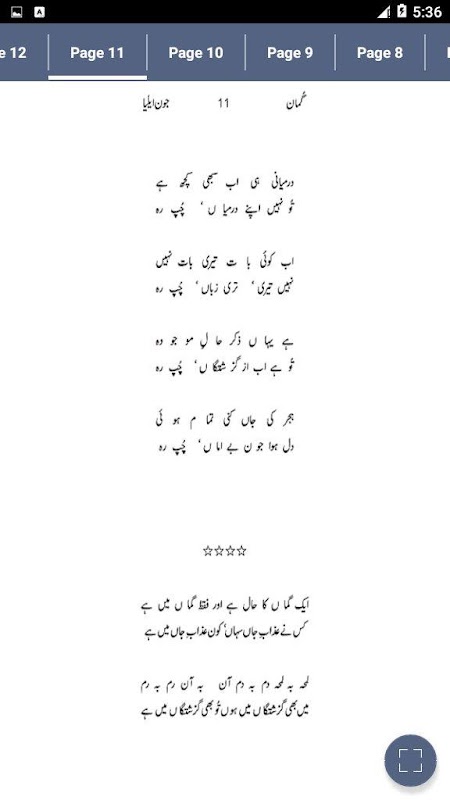 5:36
e 12 Page 11 Page 10 Page 9 Page 8
گمان 11 جون ایلیا
درمیانی ہی اب سبھی کچھ ہے
تُو نہیں اپنے درمیا ں ‘ چُپ رہ
اب کوئی با ت تیری بات نہیں
نہیں تیری ‘ تری زباں ‘ چُپ رہ
ہے یہا ں ذکر حا لِ مو جو دہ
تُو ہے اب از گز شتگا ں ‘ چُپ رہ
ہجر کی جاں کنی تما م ہو ئی
دل ہوا جو ن بے اما ں ‘ چُپ رہ
☆☆☆☆
ایک گما ں کا حال ہے اور فقط گما ں میں ہے
کس نے عذابِ جاں سہاں‘ کون عذابِ جاں میں ہے
لمحہ بہ لمحہ دم بہ دم آن بہ آن رم بہ رم
میں بھی گزشتگا ں میں ہوں تُو بھی گزشتگا ں میں ہے